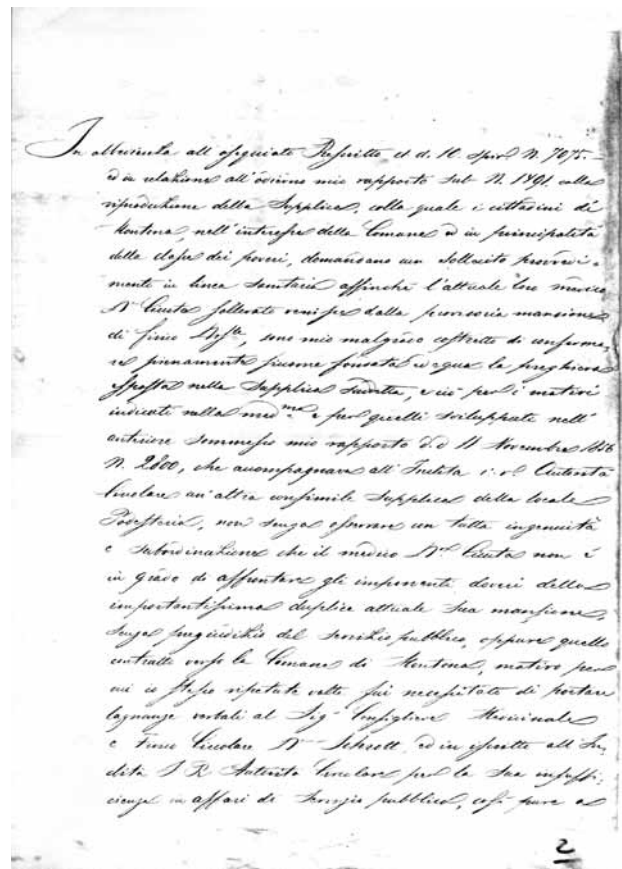 In obbedienza all'ossequiato Rescritto d. d. 10. N. 7075. –
ed in relazione all'odierno mio rapporto sub N. 1491. colla
riproduzione della Supplica, colla quale i cittadini di
Montona, nell'interesse della Comune ed in principalità
della classe dei poveri, domandano un sollecito provvedi-
mento in linea sanitaria affinché l'attuale loro medico
Dr. sollevato venisse dalla provvisoria mansione
di fisico, sono mio malgrado costretto di conferma-
re pienamente siccome fondata ed equa la preghiera
esposta nella Supplica suddetta, e ciò per i motivi
indicati nella medma. e per quelli sviluppati nell'
anteriore sommesso mio rapporto d. d. 11 Novembre 1856
N. 2800, che accompagnava all'Inclita i. r. Autorità
Circolare un'altra consimile Supplica della locale
Podesteria, non senza osservare con tutta ingenuità
e subordinazione che il medico Dr. non è
in grado di affrontare gli imponenti doveri della
importantissima duplice attuale sua mansione,
senza pregiudizio del servizio pubblico, oppure quello
contratto verso la Comune di Montona, motivo per
cui io stesso ripetute volte fui necessitato di portare
lagnanze verbali al Sigr. Consigliere Medicinale
e Fisico Circolare Dr. Schrott, ed in iscritto all'In-
clita I. R. Autorità Circolare per la sua insuffi-
cienza in affari di servizio pubblico, così pure a
2